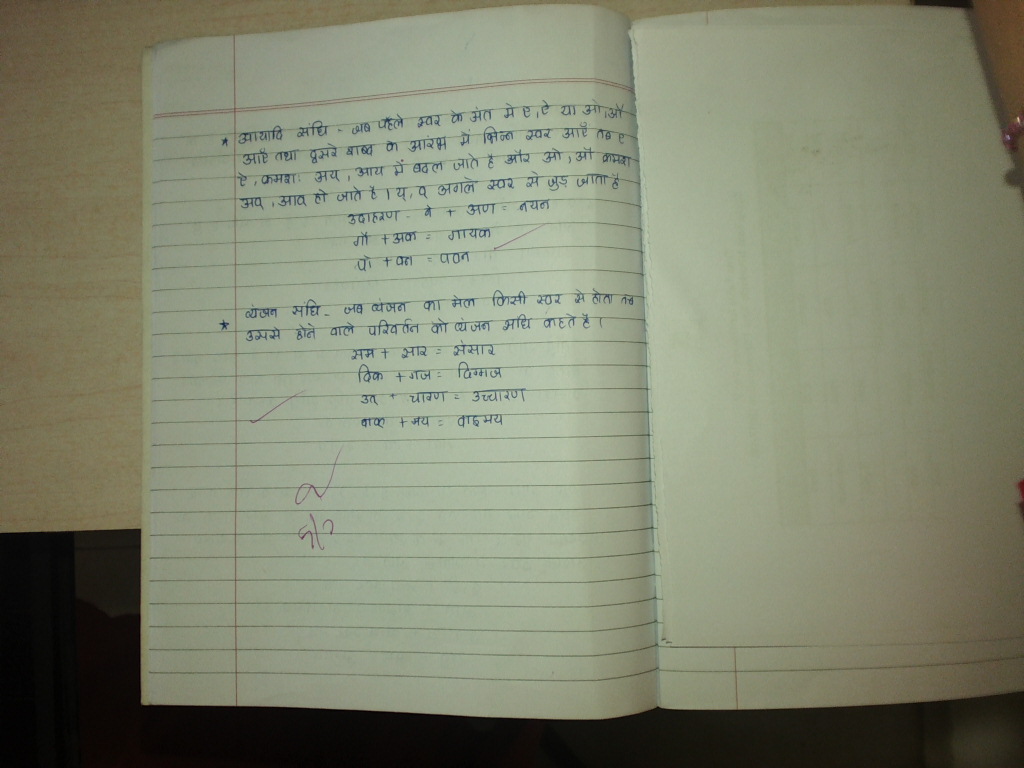 * अयादि संधि - जब पहले स्वर के अंत मे ए, ऐ या ओ, औ
आएँ तथा दूसरे शब्द के आरंभ में भिन्न स्वर आएँ तब ए
ऐ, क्रमशः अय, आय में बदल जाते है और ओ, औ क्रमश
अव, आव हो जाते है। य, व अगले स्वर से जुड़ जाता है
उदाहरण - ने + अण = नयन
गौ + अक = गायक
पो + वन = पवन
* व्यंजन संधि - जब व्यंजन का मेल किसी स्वर से होता तब
उससे होने वाले परिवर्तन को व्यंजन संधि कहते है।
सम + सार = संसार
दिक + गज = दिग्गज
उत + चारण = उच्चारण
वाक + मय = वाङमय